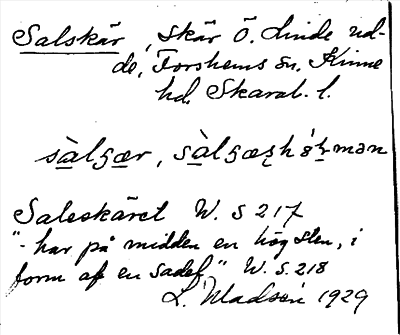 Salskär, skär ö. Linde ud-
de, Forshems sn. Kinne
hd. Skarab. l.
sàlʒær, sàlʒæ
Saleskäret W. S 217
"- har på midden en hög sten, i
form af en sadel" W. S. 218
L. Madsén 1929